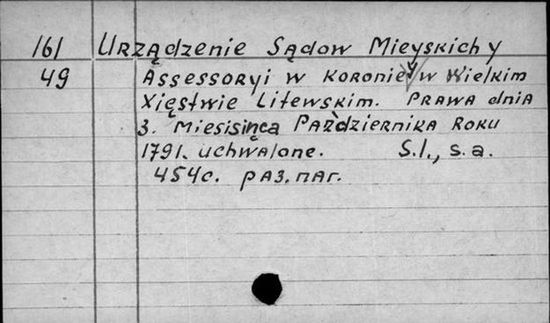 161 Urządzenie Sądow Mieyskich y
49 Assessoryi w Koronie y w Wielkim
Xięstwie Litewskim. Prawa dnia
3. Miesisięca Październikа Roku
1791. uchwalone. S.l., s.a.
454 с. раз. паг.